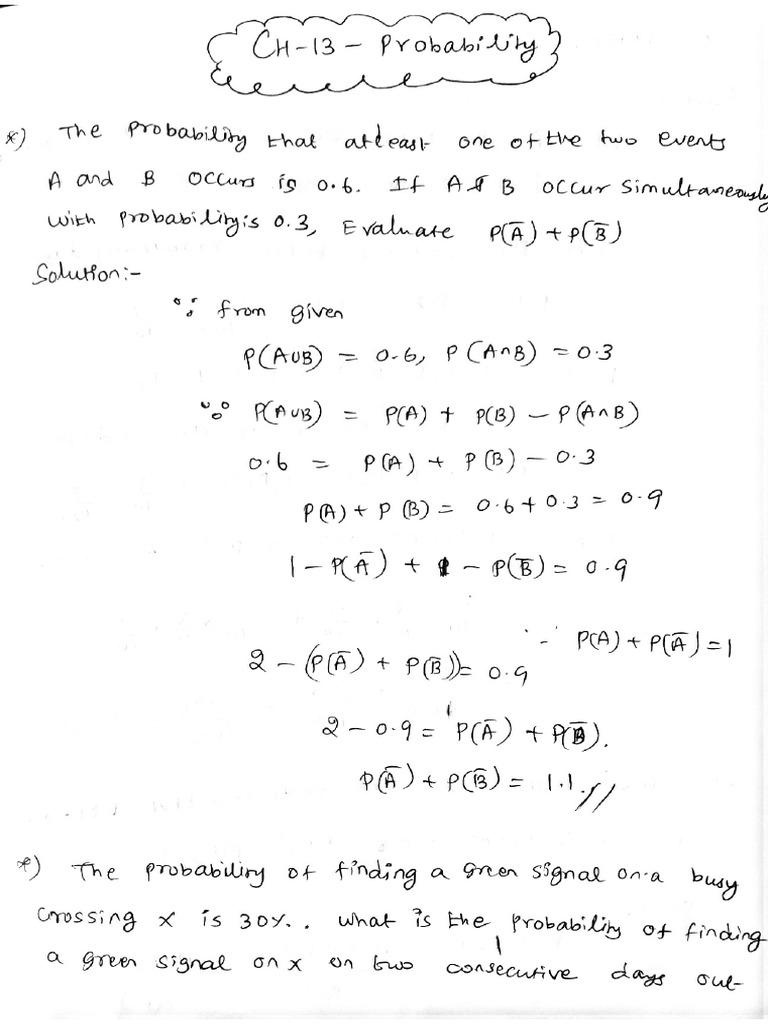 CH-13 - Probability
*) The Probability that atleast one of the two events
A and B occurs is 0.6. If A & B occur simultaneously
with probability is 0.3, Evaluate P(Ā) + P(B̄)
Solution:-
∵ from given
P(A∪B) = 0.6, P(A∩B) = 0.3
∵ P(A∪B) = P(A) + P(B) - P(A∩B)
0.6 = P(A) + P(B) - 0.3
P(A) + P(B) = 0.6 + 0.3 = 0.9
1 - P(Ā) + 1 - P(B̄) = 0.9
∵ P(A) + P(Ā) = 1
2 - (P(Ā) + P(B̄)) = 0.9
2 - 0.9 = P(Ā) + P(B̄).
P(Ā) + P(B̄) = 1.1 //
*) The probability of finding a green signal on a busy
crossing X is 30%. what is the probability of finding
a green signal on X on two consecutive days out-